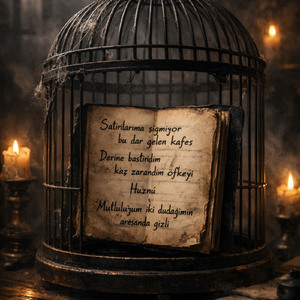 Satırlarıma sığmıyor
bu dar gelen kafes
Derine bastırdım
kaz zarandım öfkeyi
Huznü
Mutluluğum iki dudağımın
aresanda gizli